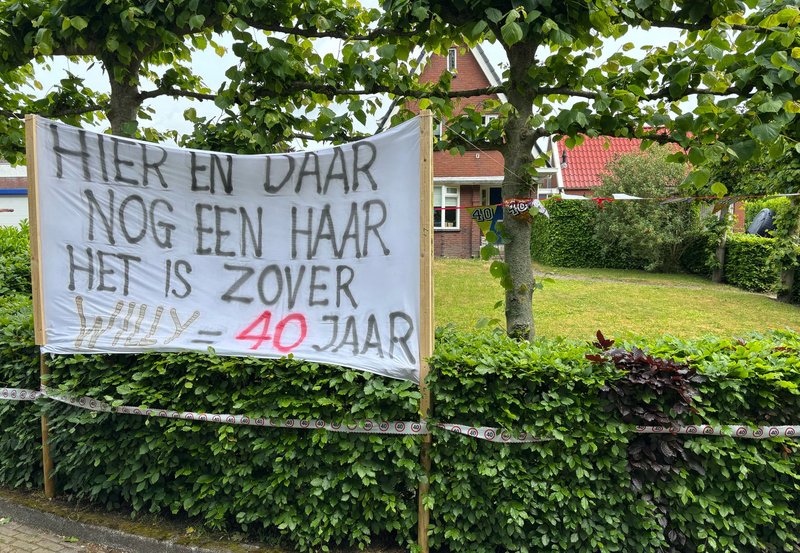 HIER EN DAAR
NOG EEN HAAR
HET IS ZOVER
WILLY = 40 JAAR
40
40